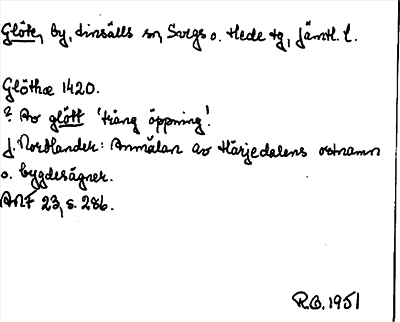 Glöte, by, Linsälls sn, Svegs o. Hede tg, Jämtl. l.
Glöthæ 1420.
? Av glött 'trång öppning'.
J. Nordlander: Anmälan av Härjedalens ortnamn
o. bygdesägner.
ANF 23, s. 286.
R.B. 1951